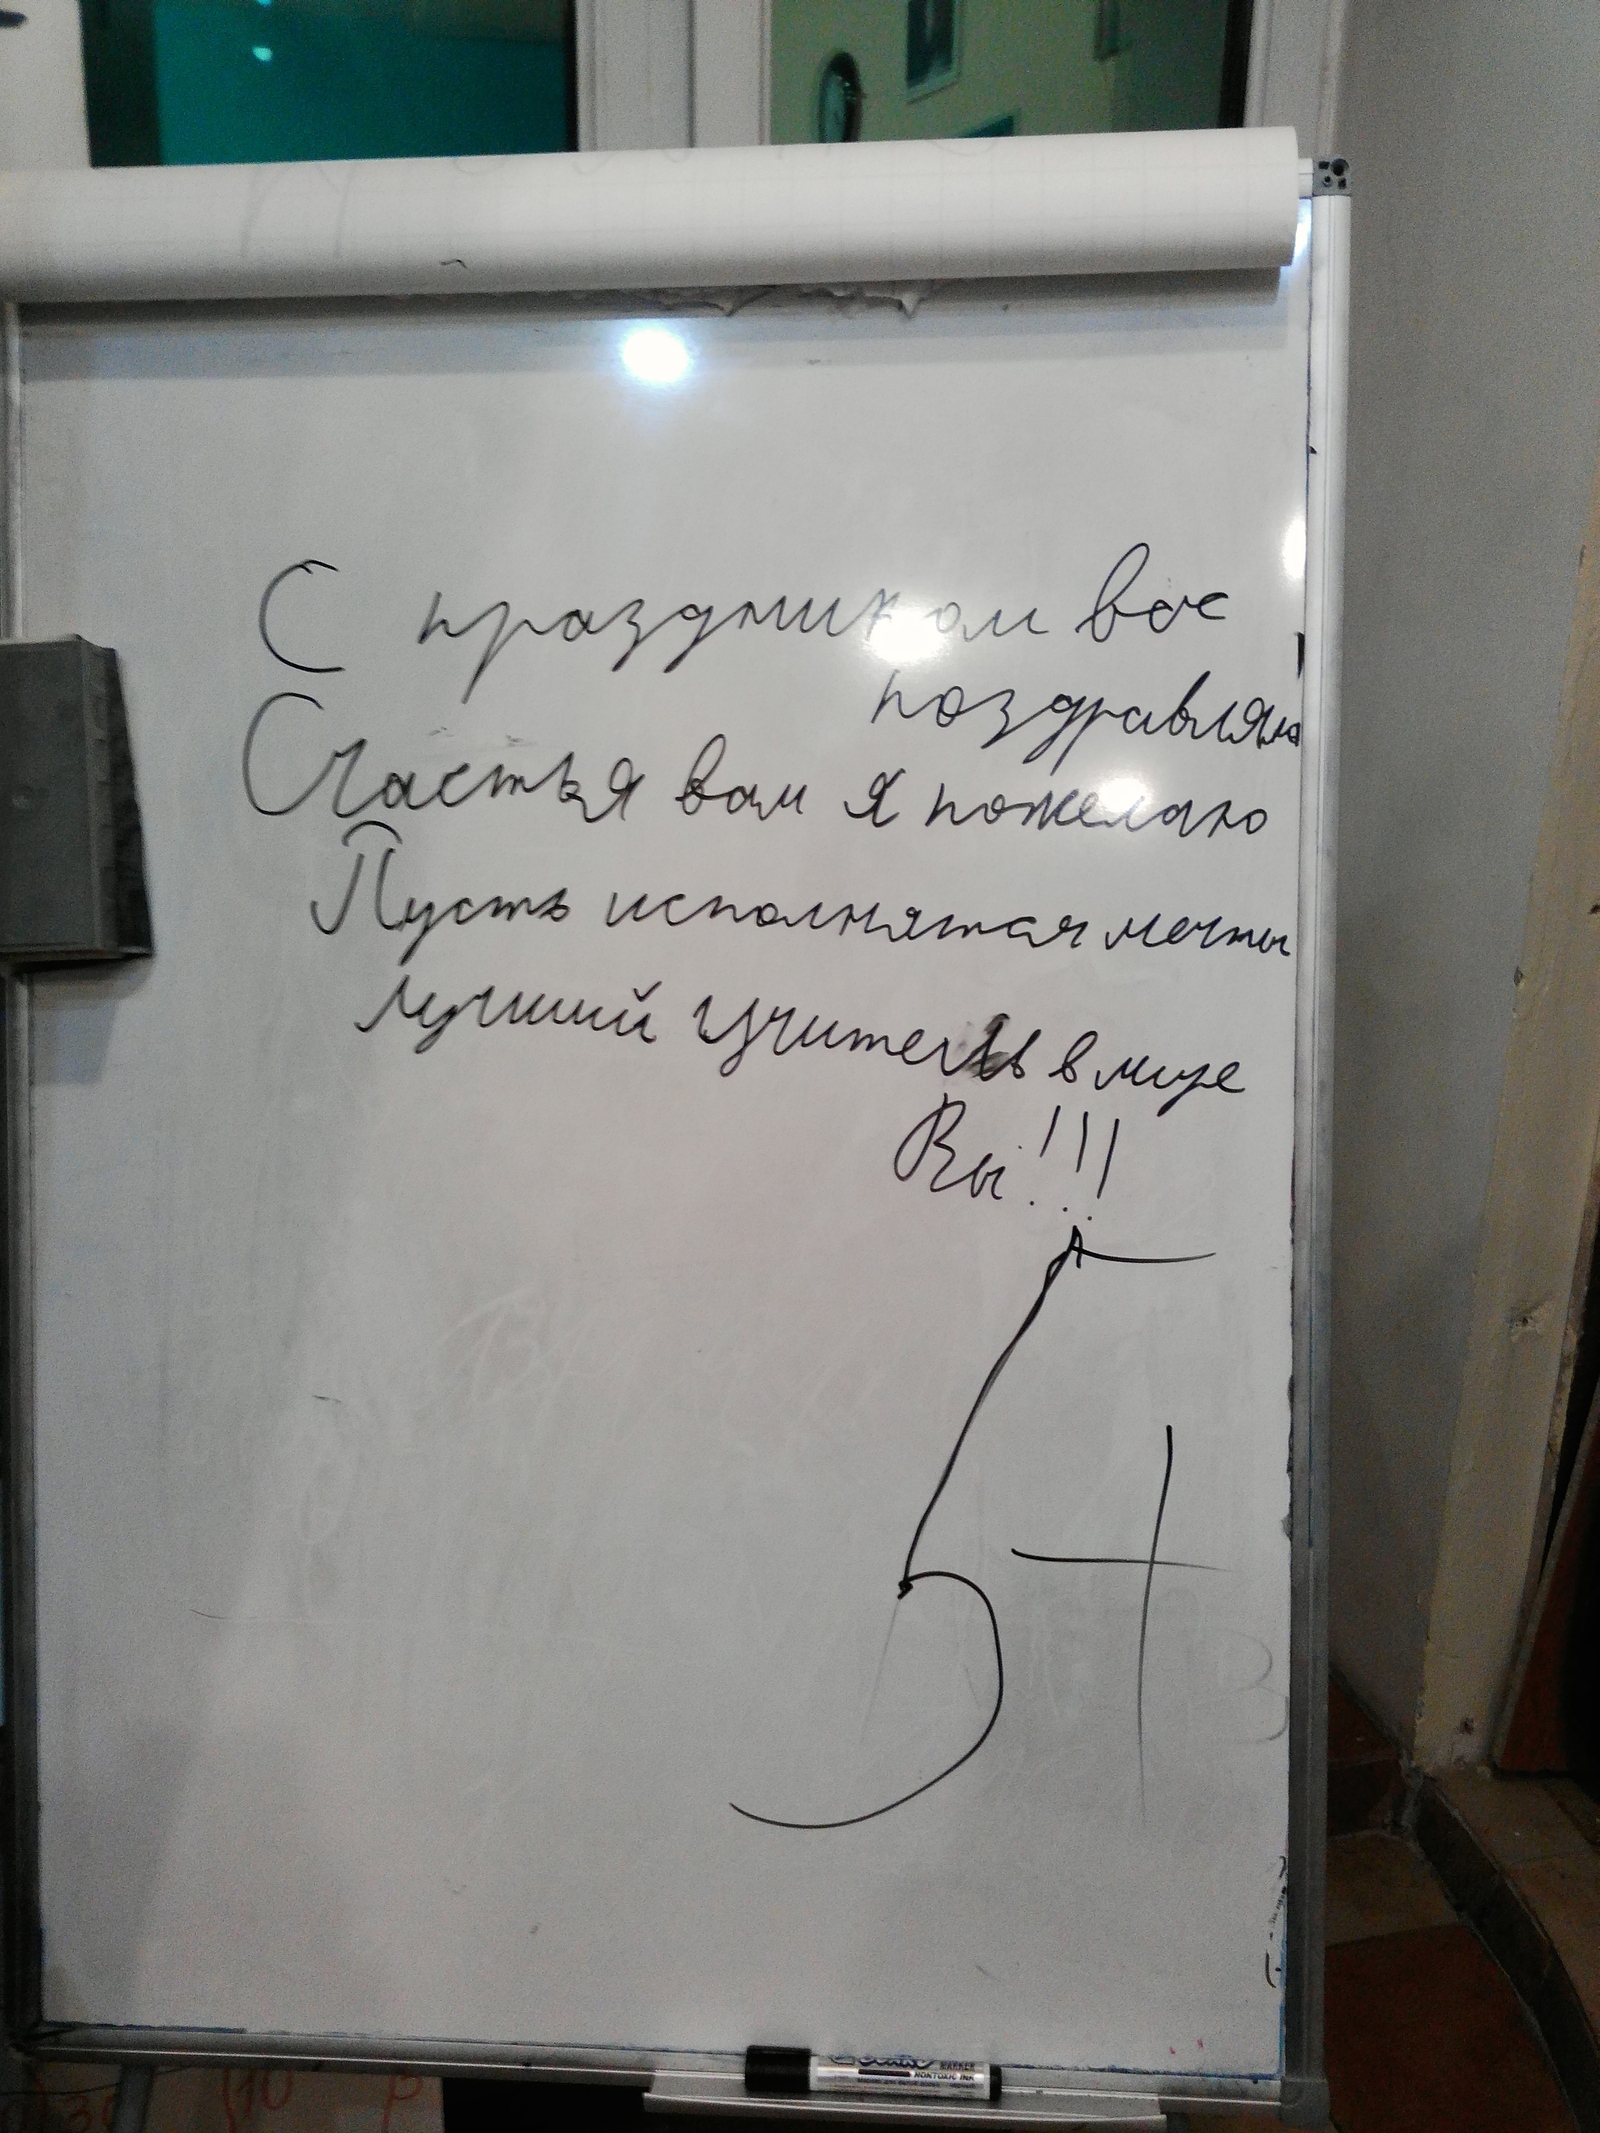 С праздником вас
поздравляю
Счастья вам я пожелаю
Пусть исполнятся мечты
лучший учитель в мире
Вы!!!
5+
MARKER
NONTOXIC INK